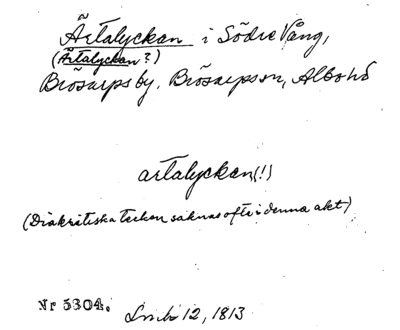 Ärtalyckan i Södre Vång,
(Ärtalyckan?)
Brösarps by, Brösarps sn, Albo hd
artalyckan(!)
(Diakritiska tecken saknas ofta i denna akt)
Nr 5304. 12, 1813